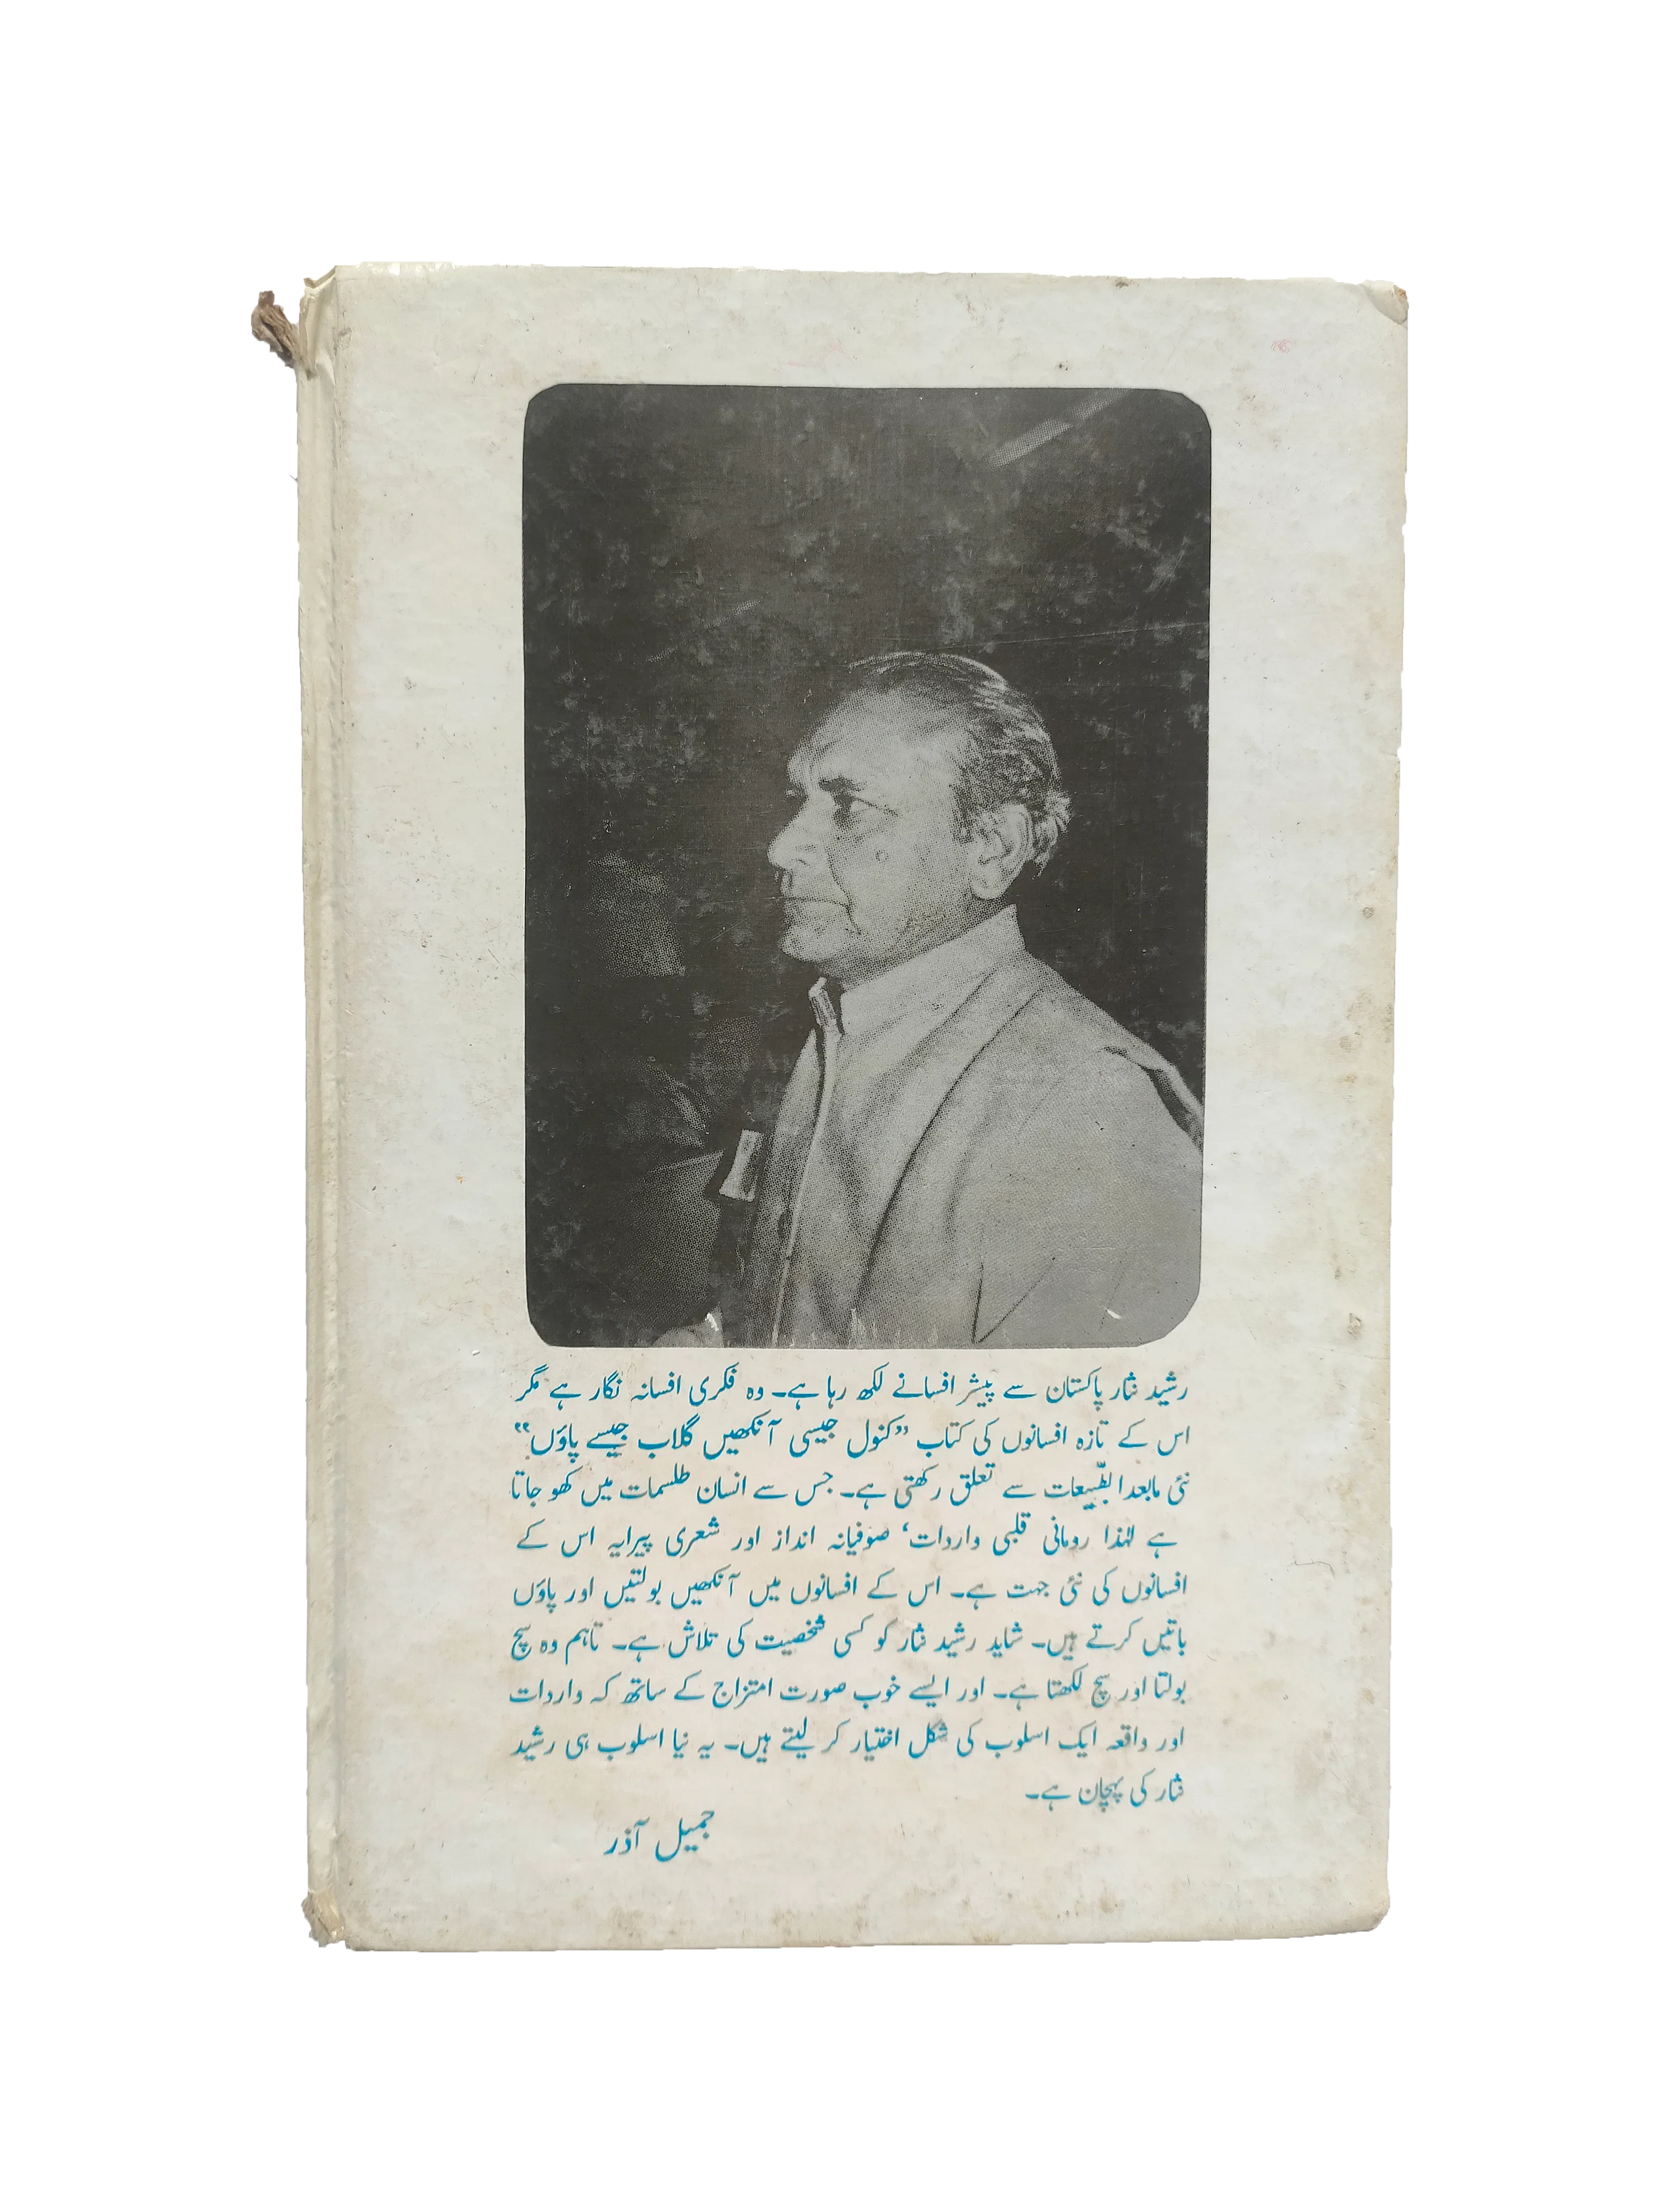 رشید نثار پاکستان سے پیشر افسانے لکھ رہا ہے۔ وہ فکری افسانہ نگار ہے مگر
اس کے تازہ افسانوں کی کتاب ”کنول جیسی آنکھیں گلاب جیسے پاؤں“
نئی مابعدالطبیعات سے تعلق رکھتی ہے۔ جس سے انسان طلسمات میں کھو جاتا
ہے لہٰذا رومانی قلبی واردات‘ صوفیانہ انداز اور شعری پیرایہ اس کے
افسانوں کی نئی جہت ہے۔ اس کے افسانوں میں آنکھیں بولتیں اور پاؤں
باتیں کرتے ہیں۔ شاید رشید نثار کو کسی شخصیت کی تلاش ہے۔ تاہم وہ سچ
بولتا اور سچ لکھتا ہے۔ اور ایسے خوب صورت امتزاج کے ساتھ کہ واردات
اور واقعہ ایک اسلوب کی شکل اختیار کر لیتے ہیں۔ یہ نیا اسلوب ہی رشید
نثار کی پہچان ہے۔
جمیل آذر